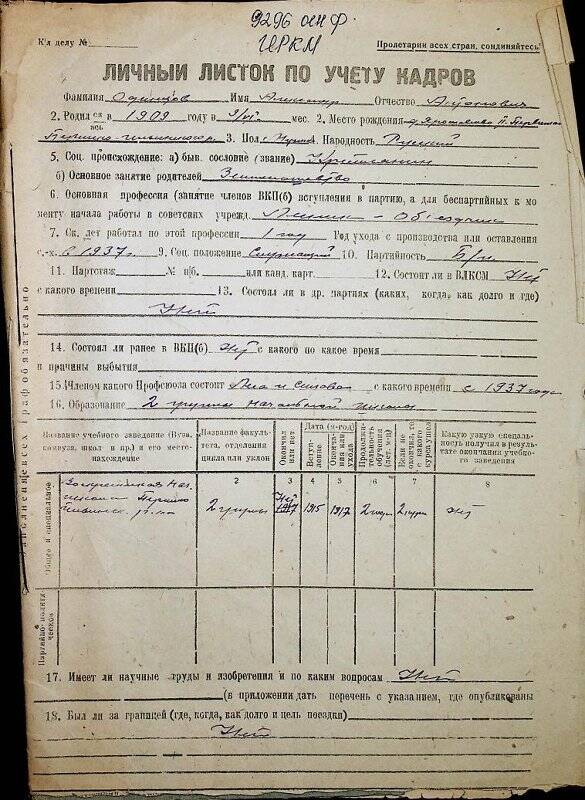 9296 ОСН Ф
ЧРКМ
К л делу №
Пролетарии всех стран, соединяйтесь!
ЛИЧНЫЙ ЛИСТОК ПО УЧЕТУ КАДРОВ
Фамилия Одинцов Имя Александр Отчество
2. Родился ся/ась в 1909 году мес. 2. Место рождения д
3. Пол Муж 4. Народность Русский
5. Соц. происхождение: а) быв. сословие (звание) Крестьянин
б) Основное занятие родителей Землепашество
6. Основная профессия (занятие членов ВКП(б) вступления в партию, а для беспартийных к мо
менту начала работы в советских учрежд. Лесник – Объездчик
7. Ск. лет работал по этой профессии 1 год Год ухода с производства или оставления
с.-х. в 1937 г. 9. Соц. положение Служащий 10. Партийность Б/п
11. Партстаж № п/б. или канд. карт. 12. Состоит ли в ВЛКСМ Нет
с какого времени 13. Состоял ли в др. партиях (каких, когда, как долго и где)
Нет
14. Состоял ли ранее в ВКП(б) Нет с какого по какое время
и причины выбытия
15. Членом какого Профсоюза состоит Леса и с какого времени с 1937 года
16. Образование 2 группы начальной школы
Название учебного заведение (Вуза, комвуза, школ и пр.) и его местонахождение
Название факультета, отделения цикла или уклон
Окончил или нет
Дата (я-год)
Вступление
Окончания или ухода
Продолжительность обучения (лет. м-ц)
Если не окончил, то с какого курса ушел
Какую узкую специальность получил в результате окончания учебного заведения
2 3 4 5 6 7 8
Общее и специальное
Воскресенская нач.
школа
р-на
2 группы Нет 1915 1917 2 года 2 групп Нет
Партийно-политическое
17. Имеет ли научные труды и изобретения и по каким вопросам Нет
(в приложении дать перечень с указанием, где опубликованы
18. Был ли за границей (где, когда, как долго и цель поездки)
Нет